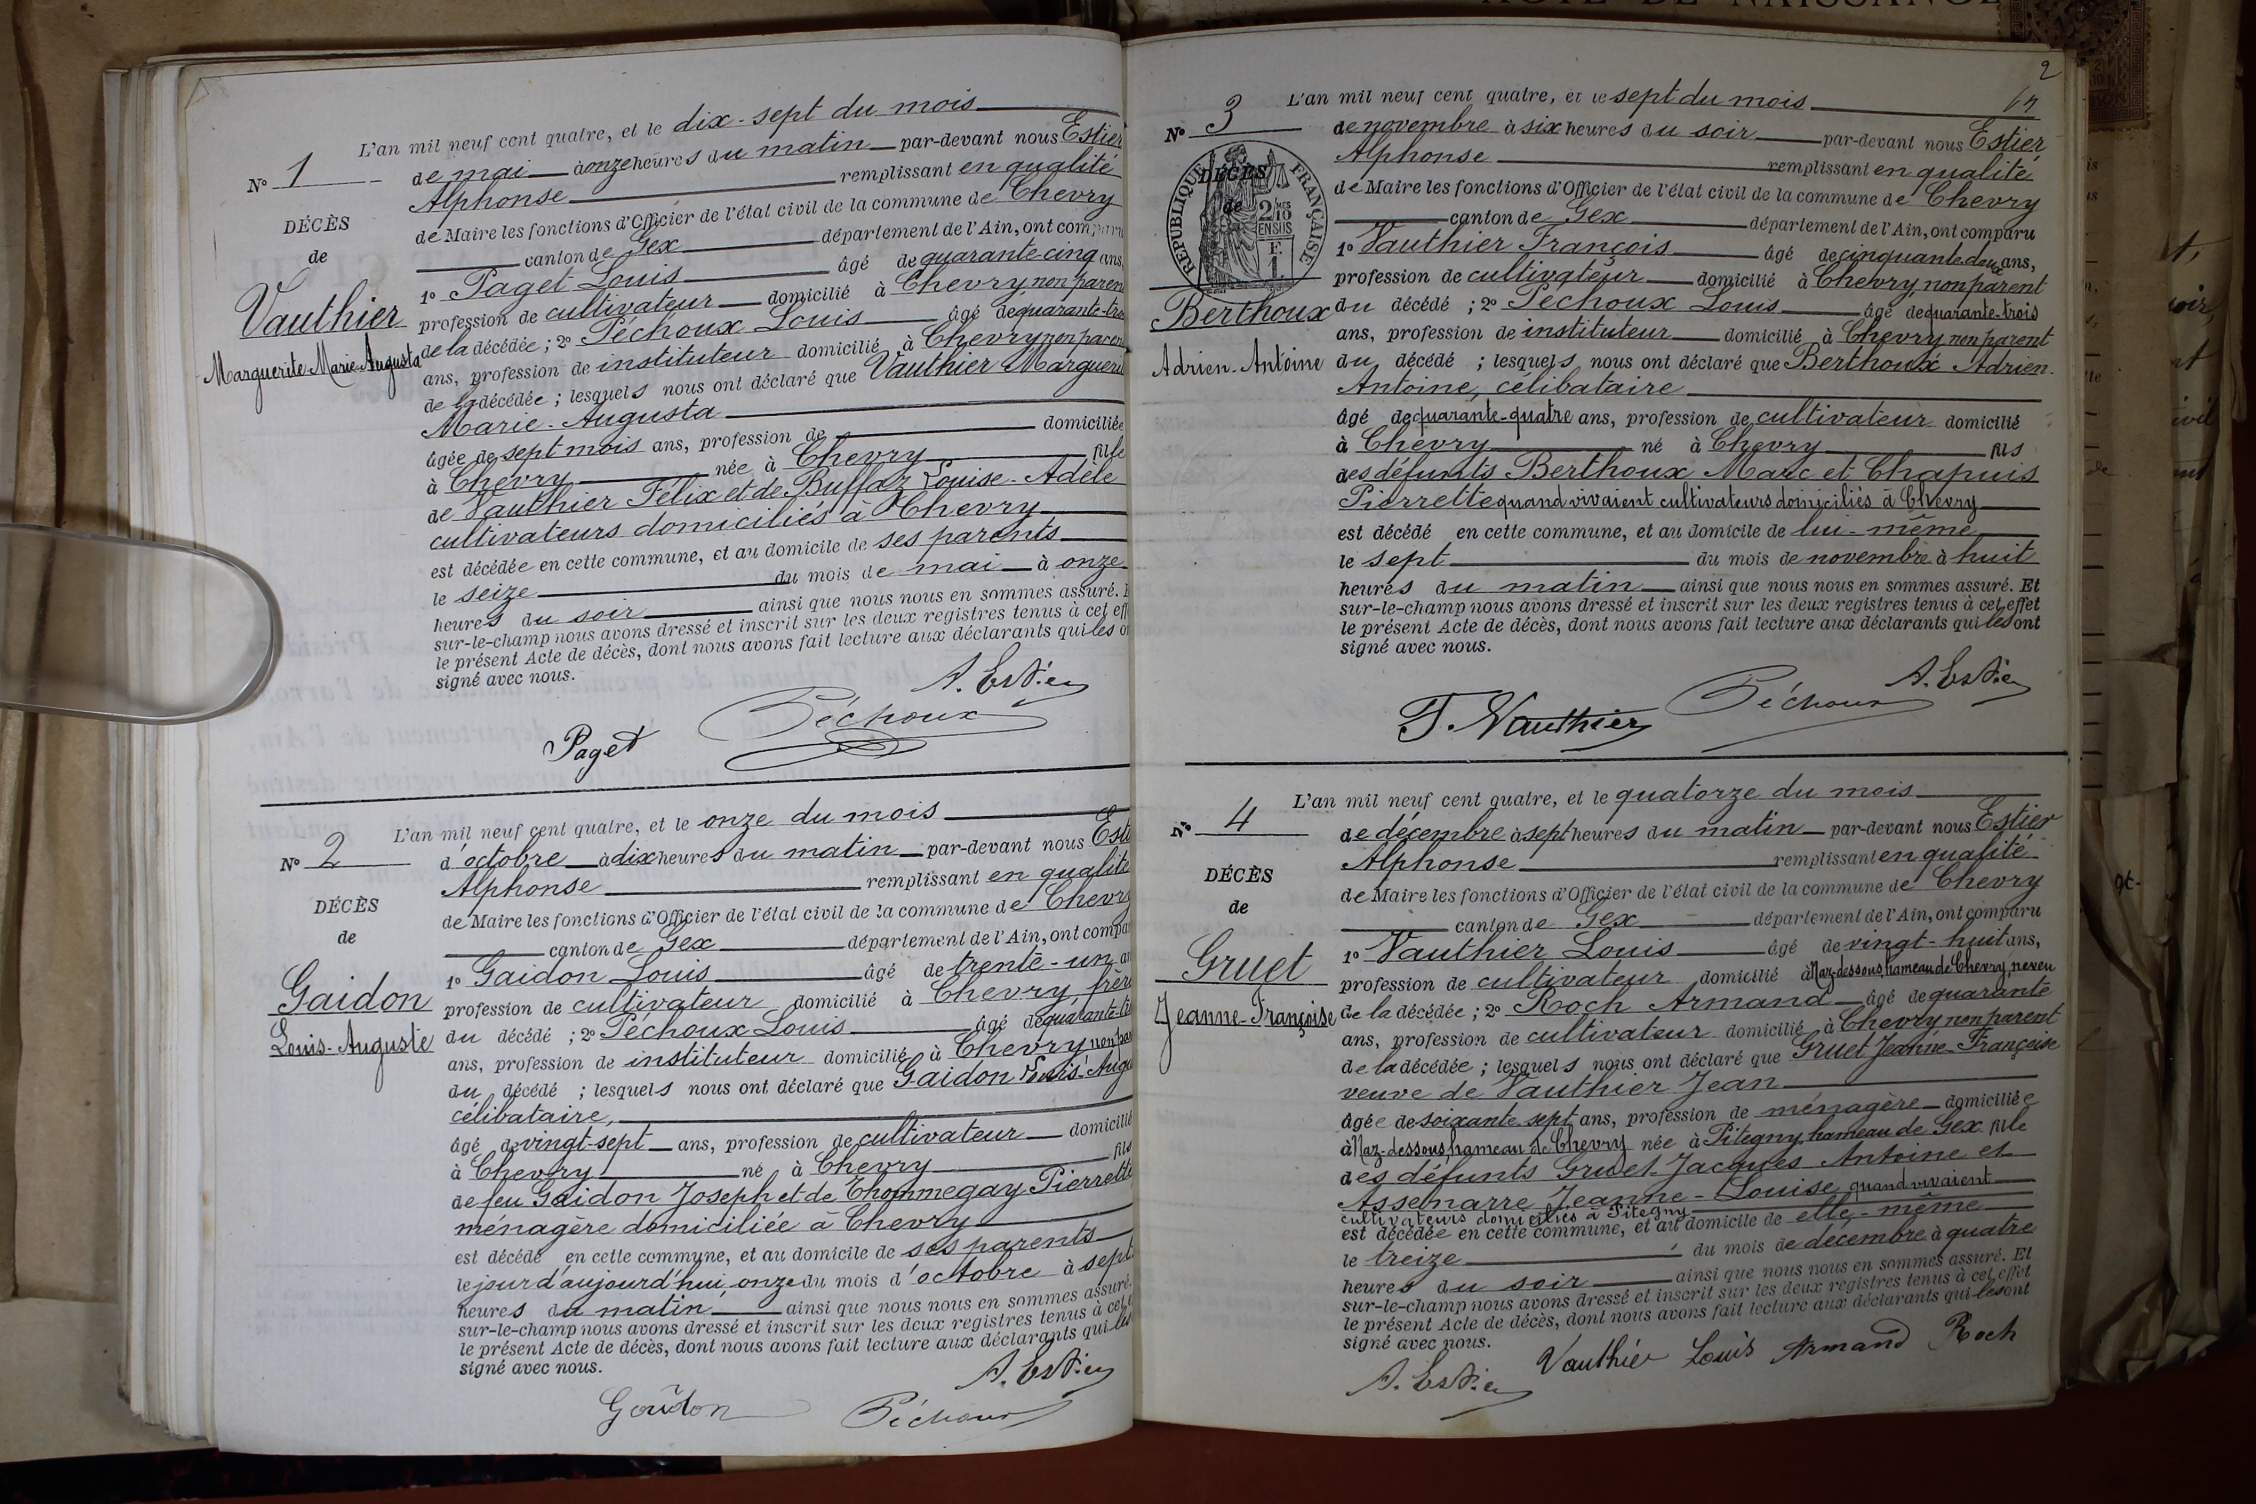 ACTE DE NAISSANCE
L'an mil neuf cent quatre, et le dix-sept du mois
N° 1
de mai à onze heures du matin par-devant nous Estier
Alphonse remplissant en qualité
DÉCÈS
de Maire les fonctions d'Officier de l'état civil de la commune de Chevry
de
canton de Gex département de l'Ain, ont comparu
1° Paget Louis âgé de quarante cinq ans,
Vauthier
profession de cultivateur domicilié à Chevry, non paren
Marguerite-Marie-Augusta
de la décédée ; 2° Péchoux Louis âgé de quarante-tro
ans, profession de instituteur domicilié à Chevry non paren
de la décédée ; lesquels nous ont déclaré que Vauthier Margueri
Marie-Augusta
âgée de sept mois ans, profession de domiciliée
à Chevry née à Chevry fille
de Vauthier Félix et de Buffaz Louise-Adèle
cultivateurs domiciliés à Chevry
est décédée en cette commune, et au domicile de ses parents
le seize du mois de mai à onze
heures du soir ainsi que nous nous en sommes assuré. E
sur-le-champ nous avons dressé et inscrit sur les deux registres tenus à cet eff
le présent Acte de décès, dont nous avons fait lecture aux déclarants qui les on
signé avec nous.
A. Estier
Péchoux
Paget
L'an mil neuf cent quatre, et le onze du mois
N° 2
d'octobre à dix heures du matin par-devant nous Esti
Alphonse remplissant en qualité
DÉCÈS
de Maire les fonctions d'Officier de l'état civil de la commune de Chevry
de
canton de Gex département de l'Ain, ont compar
1° Gaidon Louis âgé de trente-un an
Gaidon
profession de cultivateur domicilié à Chevry, frère
Louis-Auguste
du décédé ; 2° Péchoux Louis âgé de quarante-tro
ans, profession de instituteur domicilié à Chevry non par
du décédé ; lesquels nous ont déclaré que Gaidon Louis-Augu
célibataire,
âgé de vingt-sept ans, profession de cultivateur domicilié
à Chevry né à Chevry fils
de feu Gaidon Joseph et de Thommegay Pierrette
ménagère domiciliée à Chevry
est décédé en cette commune, et au domicile de ses parents
le jour d'aujourd'hui, onze du mois d'octobre à sept
heures du matin ainsi que nous nous en sommes assuré.
sur-le-champ nous avons dressé et inscrit sur les deux registres tenus à cet e
le présent Acte de décès, dont nous avons fait lecture aux déclarants qui les
signé avec nous.
A. Estier
Gaidon
Péchoux
2
L'an mil neuf cent quatre, et le sept du mois
N° 3
de novembre à six heures du soir par-devant nous Estier
Alphonse remplissant en qualité
RÉPUBLIQUE FRANÇAISE
DÉCÈS
de
2/10 EN SUS
de Maire les fonctions d'Officier de l'état civil de la commune de Chevry
canton de Gex département de l'Ain, ont comparu
1° Vauthier François âgé de cinquante deux ans,
profession de cultivateur domicilié à Chevry, non parent
Berthoux
du décédé ; 2° Péchoux Louis âgé de quarante-trois
ans, profession de instituteur domicilié à Chevry non parent
Adrien-Antoine
du décédé ; lesquels nous ont déclaré que Berthoux Adrien-
Antoine, célibataire
âgé de quarante-quatre ans, profession de cultivateur domicilié
à Chevry né à Chevry fils
des défunts Berthoux Marc et Chapuis
Pierrette quand vivaient cultivateurs domiciliés à Chevry
est décédé en cette commune, et au domicile de lui-même
le sept du mois de novembre à huit
heures du matin ainsi que nous nous en sommes assuré. Et
sur-le-champ nous avons dressé et inscrit sur les deux registres tenus à cet effet
le présent Acte de décès, dont nous avons fait lecture aux déclarants qui les ont
signé avec nous.
A. Estier
Péchoux
F. Vauthier
L'an mil neuf cent quatre, et le quatorze du mois
N° 4
de décembre à sept heures du matin par-devant nous Estier
Alphonse remplissant en qualité
DÉCÈS
de Maire les fonctions d'Officier de l'état civil de la commune de Chevry
de
canton de Gex département de l'Ain, ont comparu
1° Vauthier Louis âgé de vingt-huit ans,
Gruet
profession de cultivateur domicilié à Naz-dessous, hameau de Chevry, neveu
Jeanne-Françoise
de la décédée ; 2° Roch Armand âgé de quarante
ans, profession de cultivateur domicilié à Chevry non parent
de la décédée ; lesquels nous ont déclaré que Gruet Jeanne-Françoise
veuve de Vauthier Jean
âgée de soixante sept ans, profession de ménagère domiciliée
à Naz-dessous, hameau de Chevry née à Pitegny hameau de Gex fille
des défunts Gruet Jacques Antoine et
Assemarre Jeanne-Louise quand vivaient
cultivateurs domiciliés à Pitegny
est décédée en cette commune, et au domicile de elle-même
le treize du mois de décembre à quatre
heures du soir ainsi que nous nous en sommes assuré. Et
sur-le-champ nous avons dressé et inscrit sur les deux registres tenus à cet effet
le présent Acte de décès, dont nous avons fait lecture aux déclarants qui les ont
signé avec nous.
Vauthier Louis Armand Roch
A. Estier